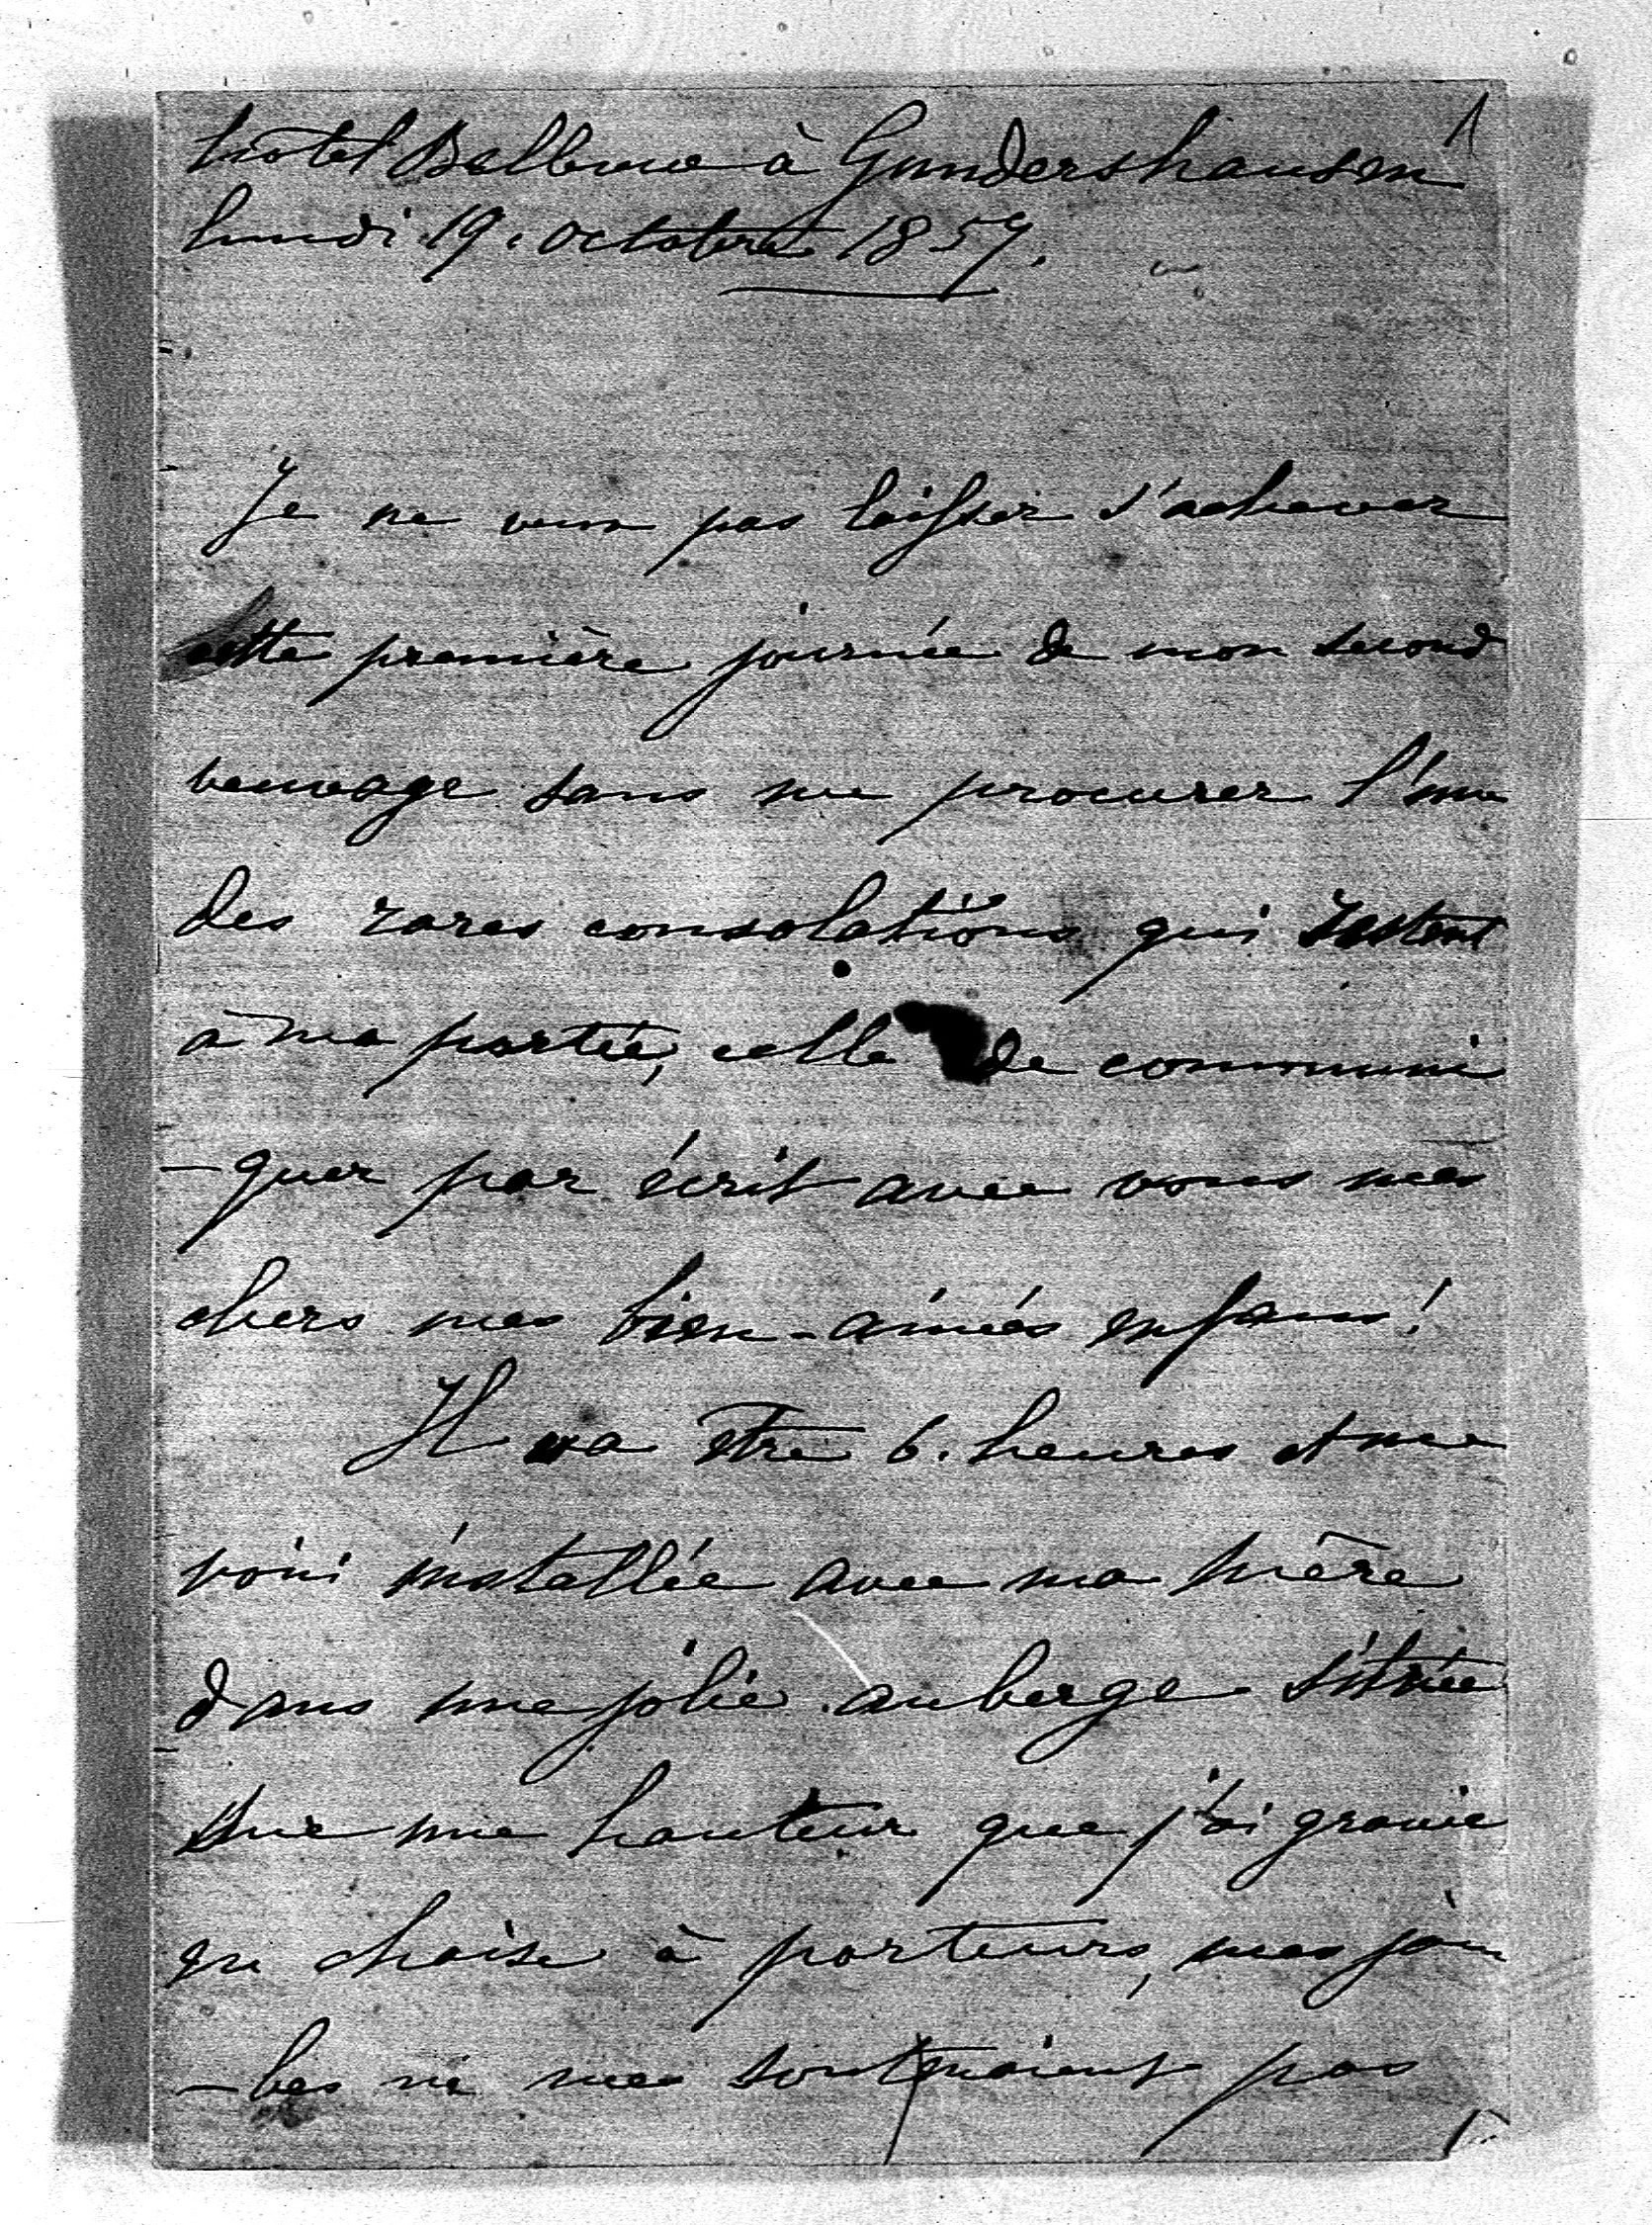 1
hôtel Bellevue à Gundershausen
lundi 19. octobre 1857.
Je ne veux pas laisser s'achever
cette première journée de mon second
veuvage sans me procurer l'une
des rares consolations qui restent
à ma portée, celle de communi
-quer par écrit avec vous mes
chers mes bien-aimés enfans!
Il va être 6. heures et me
voici installée avec ma mère
dans une jolie auberge située
sur une hauteur que j'ai gravie
en chaise à porteurs, mes jam
-bes ne me soutenaient pas